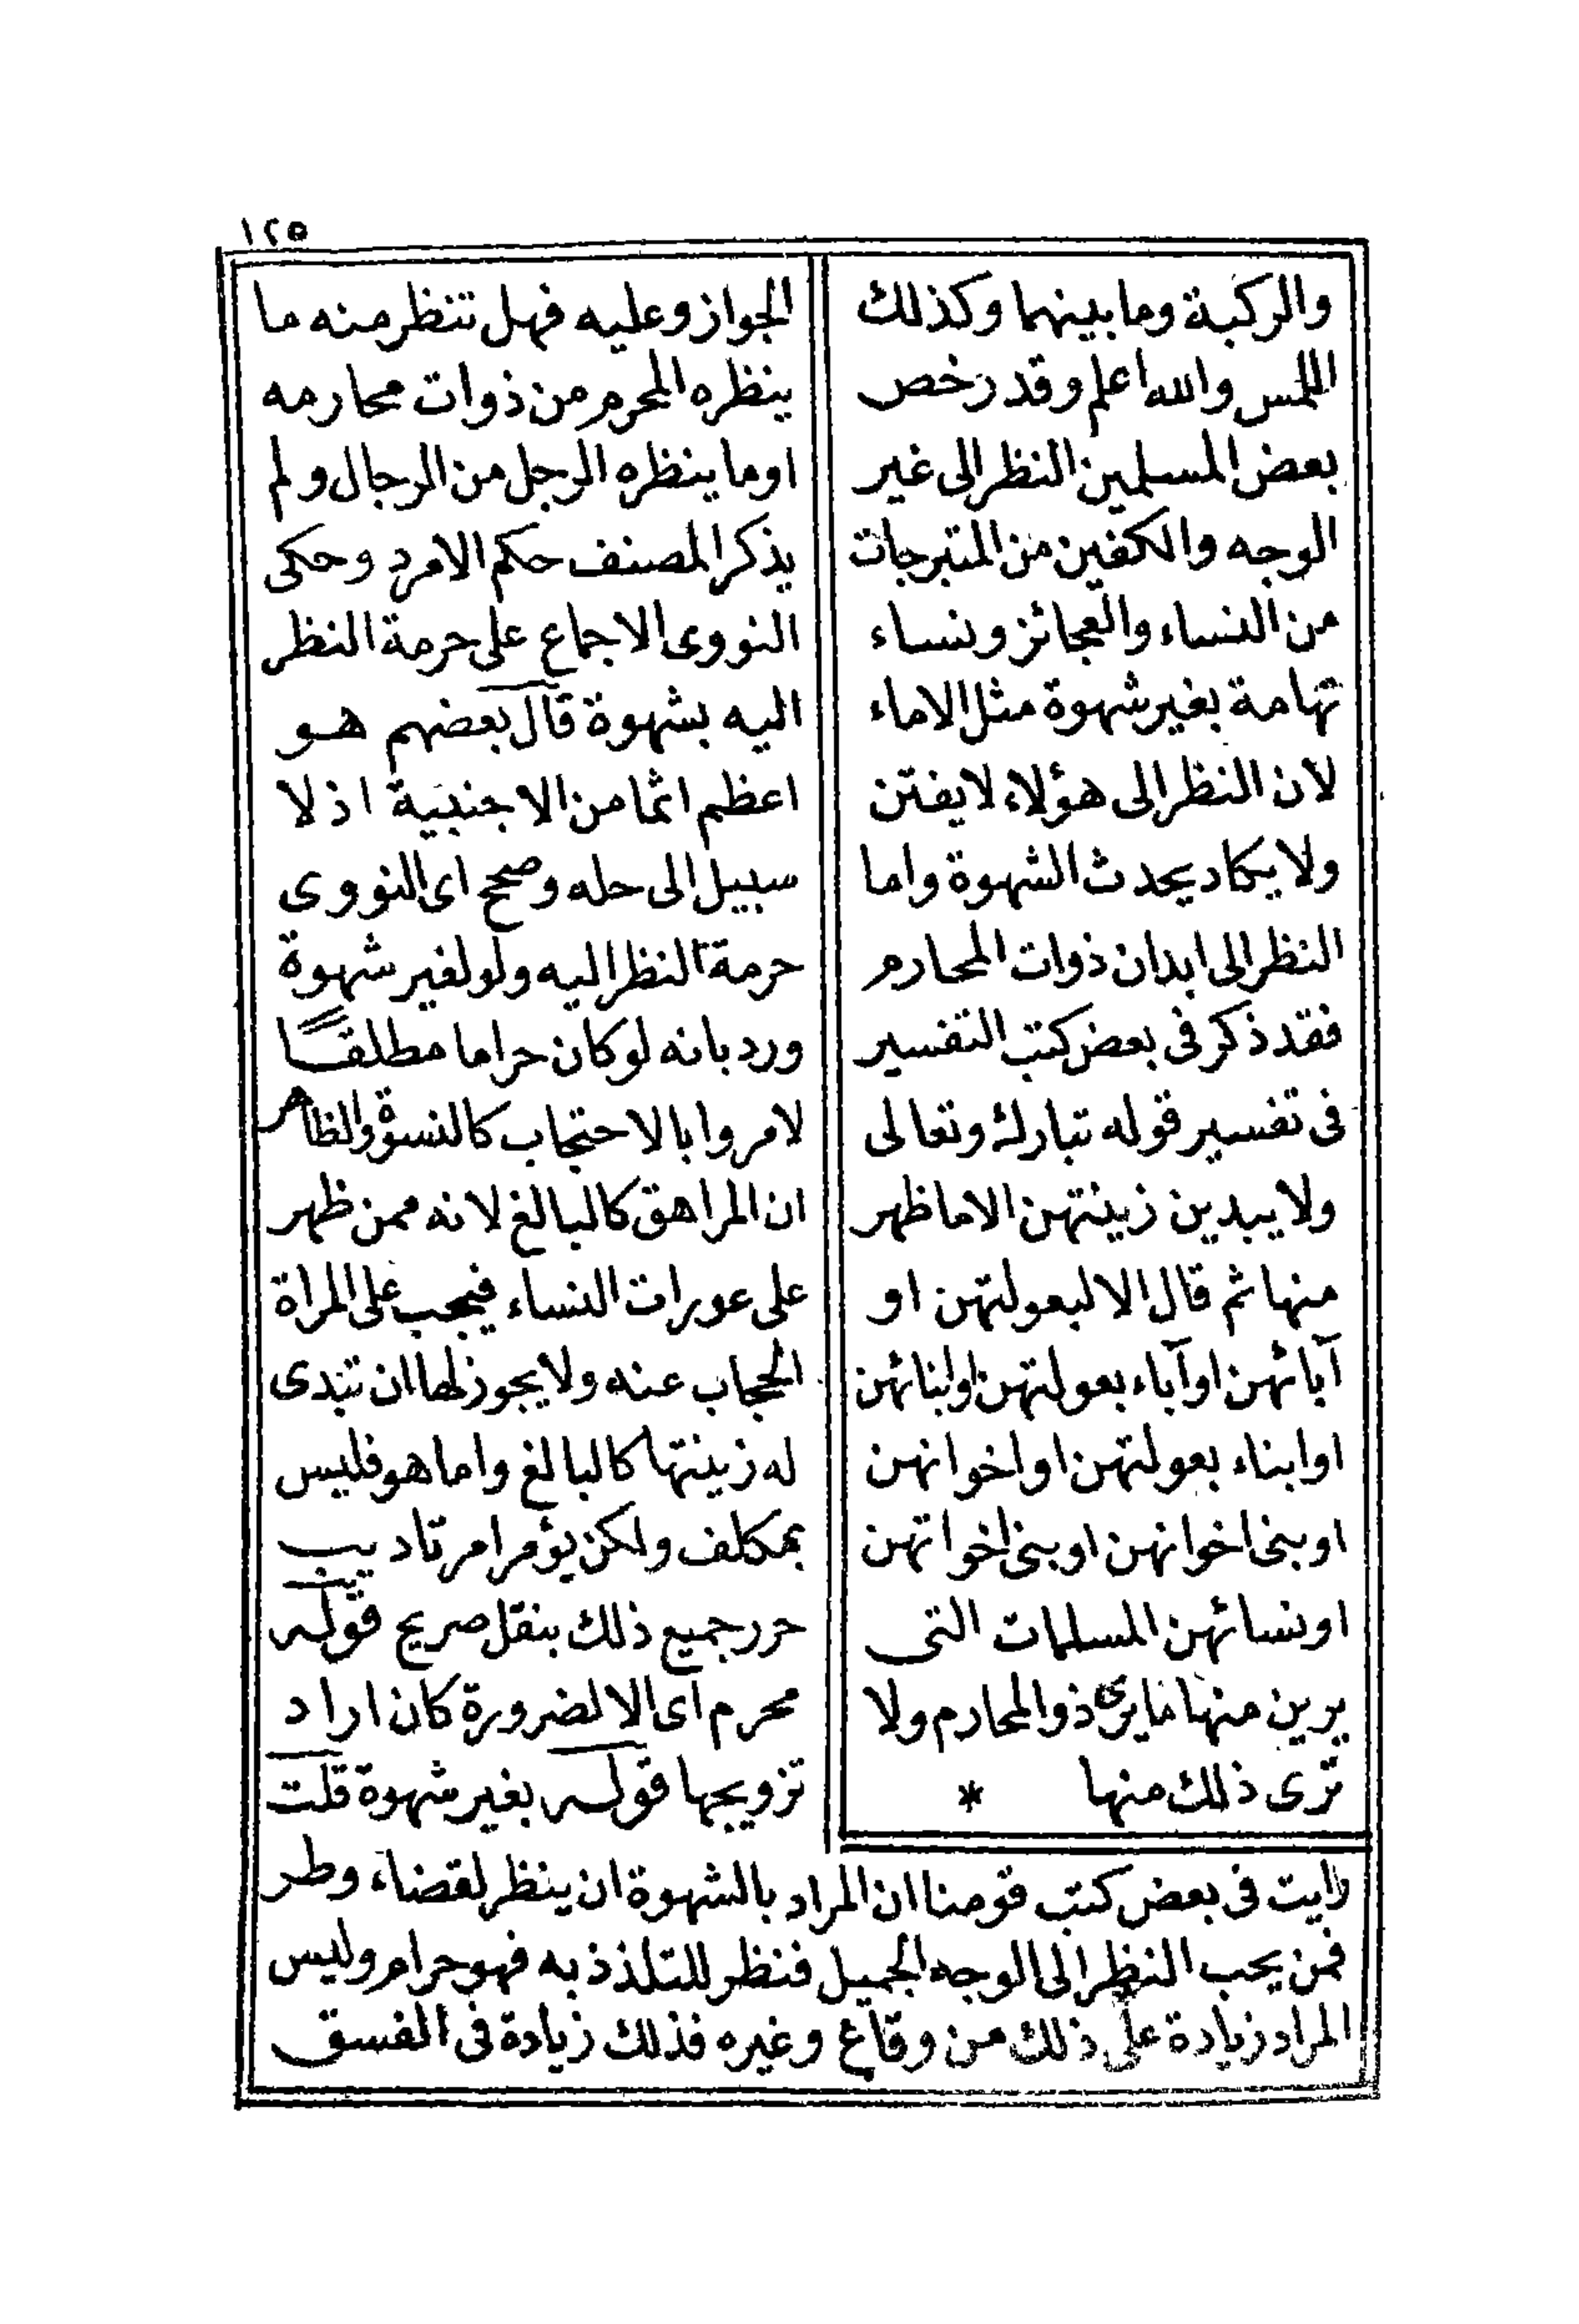 ١٢٥
والركبة وما بينهما وكذلك
اللمس والله اعلم وقد رخص
بعض المسلمين النظر الى غير
الوجه والكفين من المتبرجات
من النساء والعجائز ونساء
تهامة بغير شهوة مثل الاماء
لان النظر الى هؤلاء لا يفتن
ولا يكاد يحدث الشهوة واما
النظر الى ابدان ذوات المحارم
فقد ذكر فى بعض كتب التفسير
فى تفسير قوله تبارك وتعالى
ولا يبدين زينتهن الا ما ظهر
منها ثم قال الا لبعولتهن او
آبائهن او آباء بعولتهن او ابنائهن
او ابناء بعولتهن او اخوانهن
او بنى اخوانهن او بنى اخواتهن
او نسائهن المسلمات التى
يرين منها ما يرى ذو المحارم ولا
ترى ذلك منها *
الجواز وعليه فهل تنظر منه ما
ينظره المحرم من ذوات محارمه
او ما ينظره الرجل من الرجال ولم
يذكر المصنف حكم الامرد وحكى
النووى الاجماع على حرمة النظر
اليه بشهوة قال بعضهم هو
اعظم اثما من الاجنبية اذ لا
سبيل الى حله وصحح اى النووى
حرمة النظر اليه ولو لغير شهوة
ورد بانه لو كان حراما مطلقًا
لامروا بالاحتجاب كالنسوة والظاهر
ان المراهق كالبالغ لانه ممن ظهر
على عورات النساء فيجب على المراة
الحجاب عنه ولا يجوز لها ان تبدى
له زينتها كالبالغ واما هو فليس
بمكلف ولكن يؤمر امر تاديب
حرر جميع ذلك بنقل صريح قوله
محرم اى الا لضرورة كان اراد
تزويجها قوله بغير شهوة قلت
رايت فى بعض كتب قومنا ان المراد بالشهوة ان ينظر لقضاء وطر
فمن يحب النظر الى الوجه الجميل فنظر للتلذذ به فهو حرام وليس
المراد زيادة على ذلك من وقاع وغيره فذلك زيادة فى الفسق